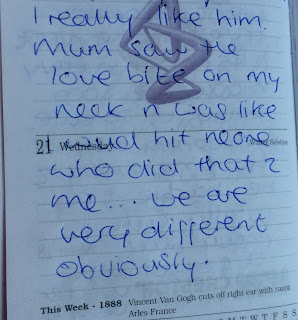 I really like him.
Mum saw the
love bite on my
neck n was like
I would hit neone
21 Wednesday
Winter Solstice
who did that 2
me... we are
very different
obviously.
This Week - 1888 Vincent Van Gogh cuts off right ear with razor.
Arles France
M T W T F S S